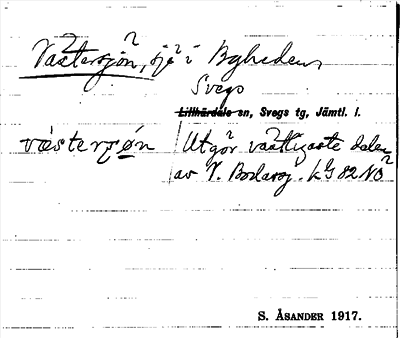 Västersjön, sjö i Byheden,
Svegs
Lillhärdals sn, Svegs tg, Jämtl. l.
västerʃøn Utgör västligaste delen
av V. Bodarsj. LG 82 NO
S. ÅSANDER 1917.